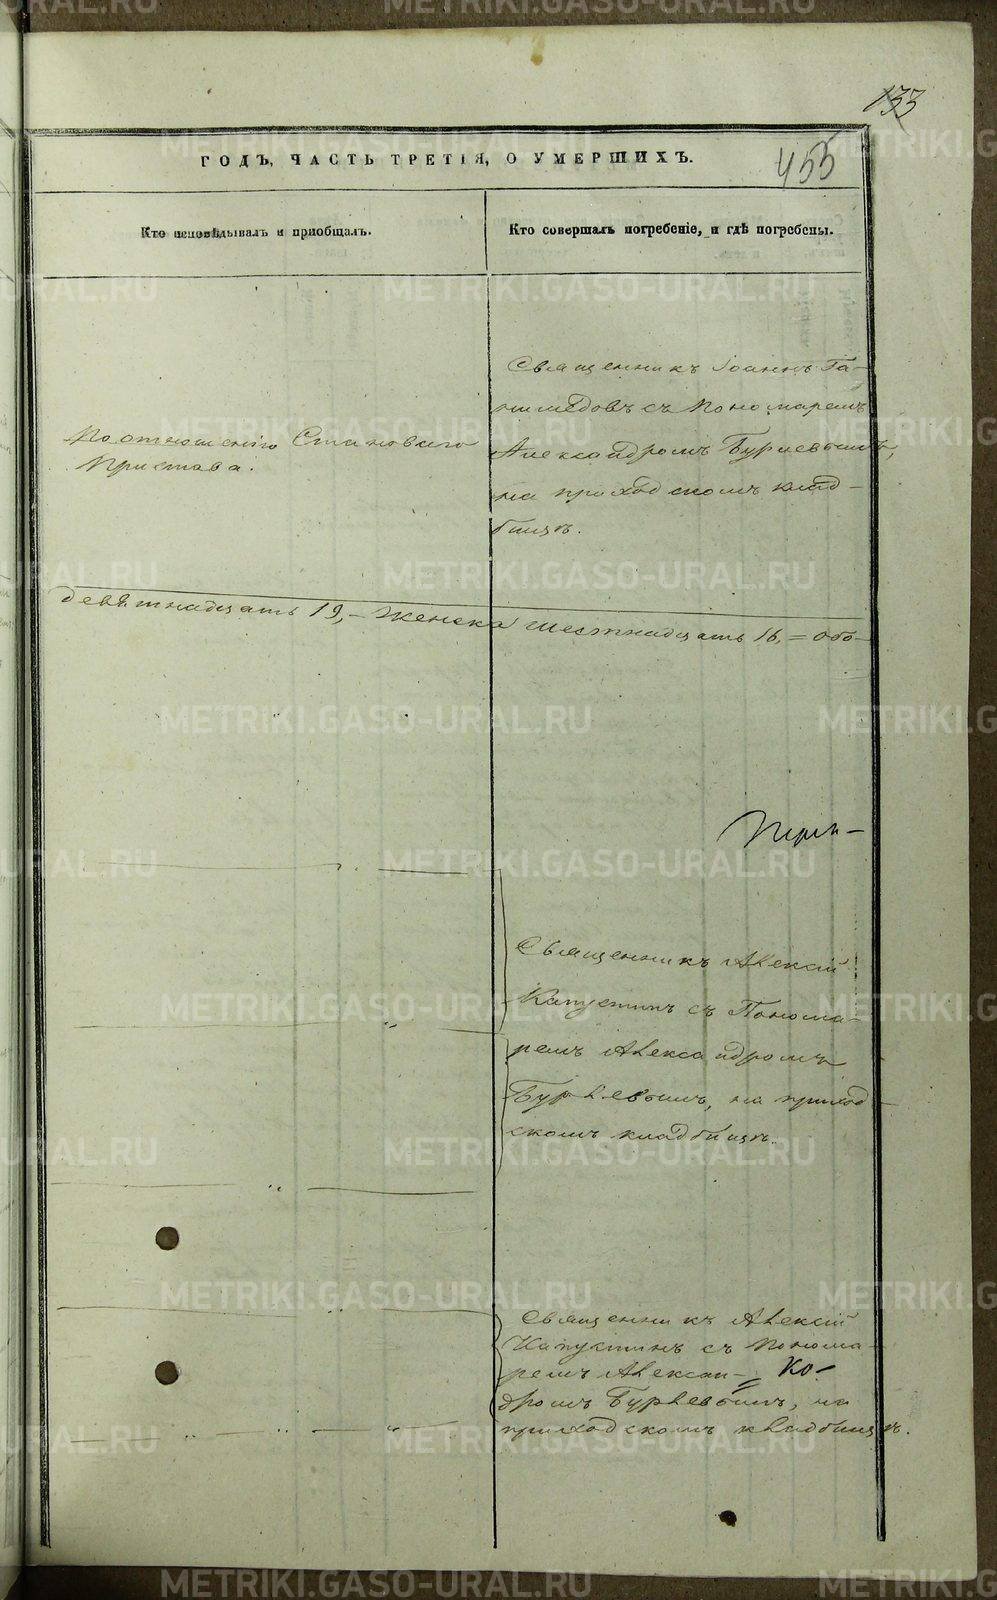 133
455
ГОДЪ, ЧАСТЬ ТРЕТІЯ, О УМЕРШИХЪ.
Кто исповѣдывалъ и пріобщалъ.
Кто совершалъ погребеніе, и гдѣ погребены.
По отношенію Становаго
Пристава.
Священникъ Іоаннъ Га-
нимедовъ съ Пономаремъ
Александромъ Бурлевымъ,
на приходскомъ клад-
бищѣ.
девятнадцать 19, – женска шестнадцать 16, = обо-
Священникъ Алексій
Капустинъ съ Понома-
ремъ Алексадромъ
Бурлевымъ, на приход-
скомъ кладбищѣ.
Священникъ Алексій
Капустинъ съ Понома-
ремъ Алексан- Ко-
дромъ Бурлевымъ, на
приходскомъ кладбищѣ.
METRIKI.GASO-URAL.RU